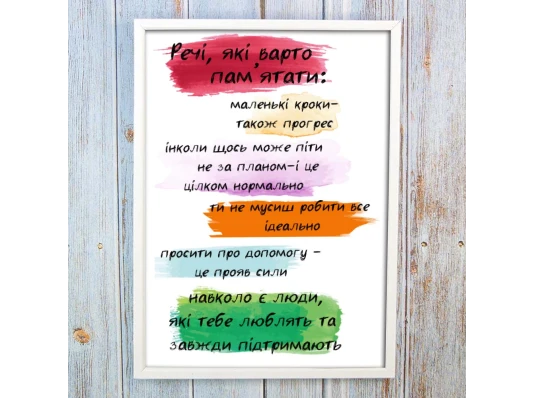 Речі, які варто
пам'ятати:
маленькі кроки–
також прогрес
інколи щось може піти
не за планом–і це
цілком нормально
ти не мусиш робити все
ідеально
просити про допомогу –
це прояв сили
навколо є люди,
які тебе люблять та
завжди підтримають